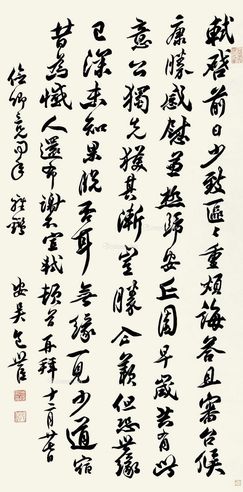 軾啓前日少致區〻重煩誨答且審台候
康勝感慰兼極歸安丘園早歲共有此
意公獨先獲其漸豈勝企羨但恐世緣
已深未知果脫否耳無緣一見少道宿
昔為人還布謝不宣軾頓首再拜十二月廿日
卿 雅鑑 安吳包世臣